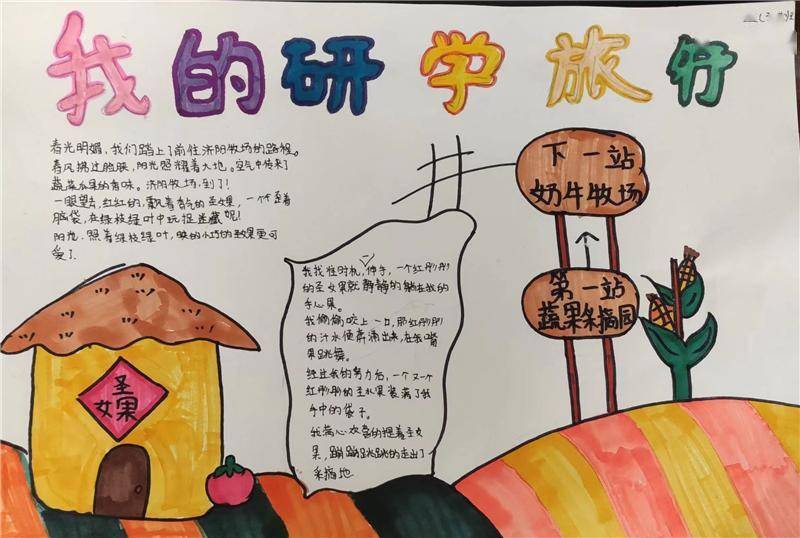 我的研学旅行
春光明媚,我们踏上了前往济阳牧场的路程。
春风拂过脸颊,阳光照耀着大地。空气中传来了
蔬菜水果的香味。济阳牧场,到了!
一眼望去,红红的,飘着香气的圣女果,一个个歪着
脑袋,在绿枝绿叶中玩捉迷藏呢!
阳光,照着绿枝绿叶,映的小巧的圣果更可
爱了
下一站
奶牛牧场
第一站
蔬果采摘园
我找准时机,伸手,一个红彤彤
的圣女果就静静的躺在我的
手心果。
我偷偷咬上一口,那红彤彤
的汁水便喷涌出来,在我嘴
里跳舞。
经过我的努力后,一个又一个
红彤彤的圣女果装满了我
手中的袋子。
我满心欢喜的提着圣女
果,蹦蹦跳跳的走出了
采摘地
圣
女果